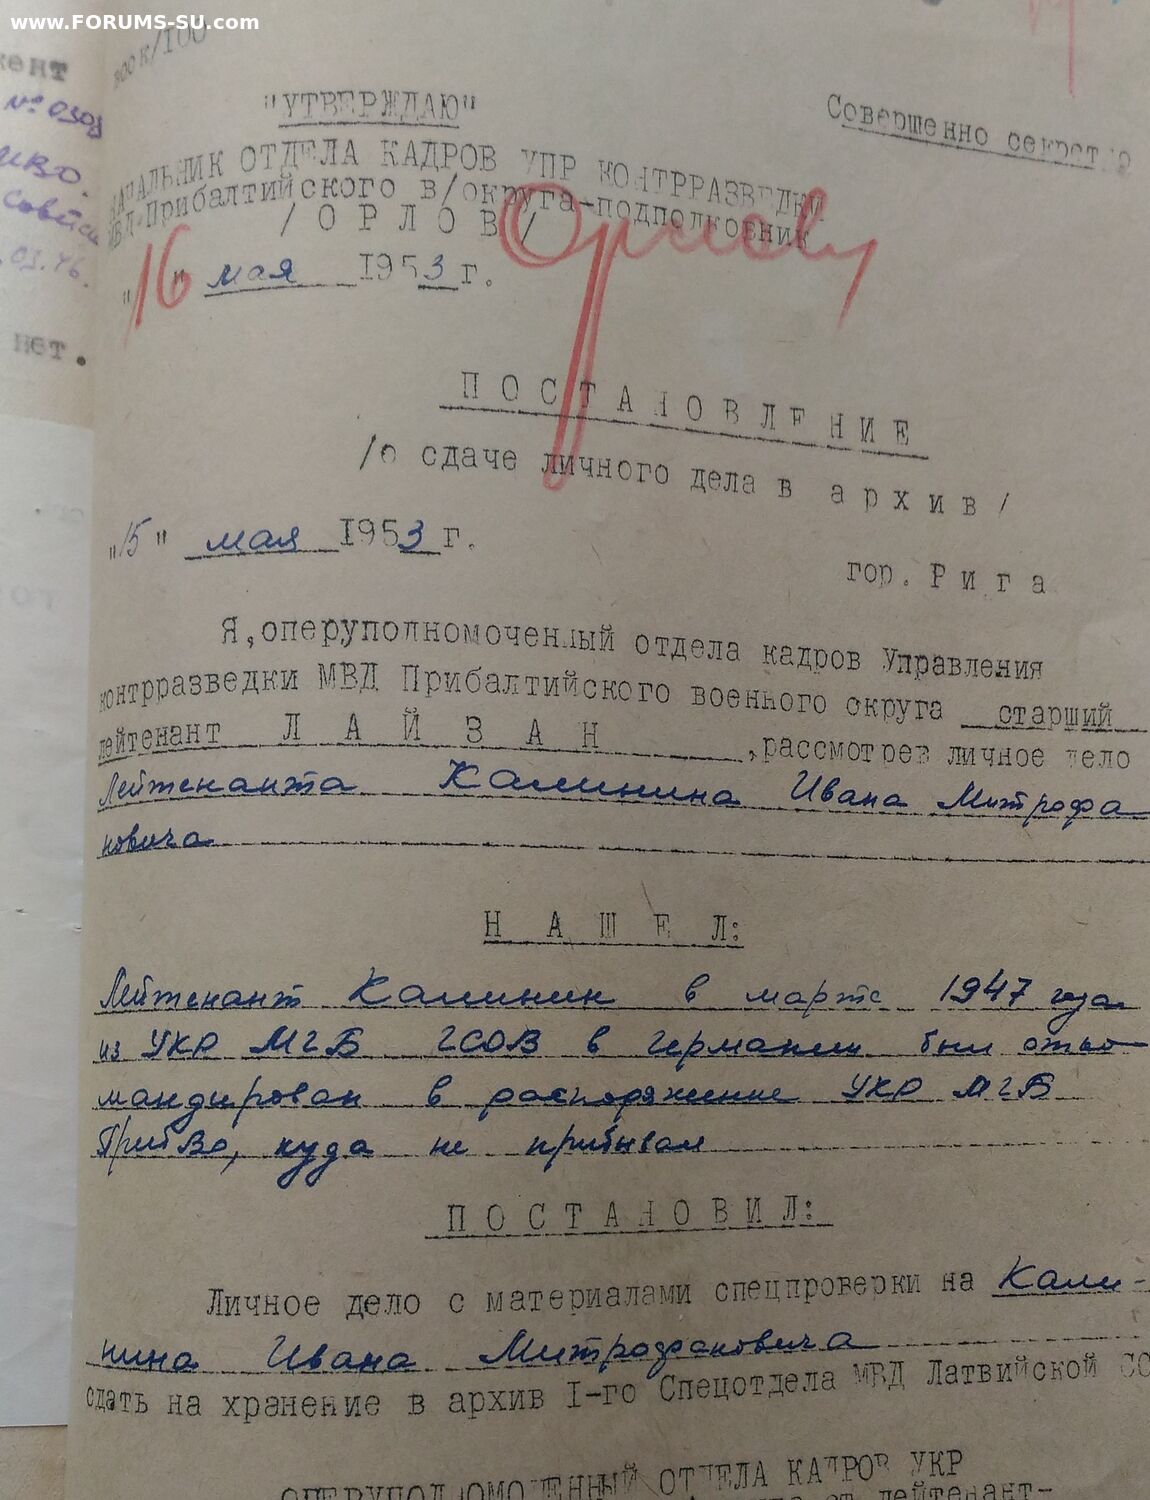 www.FORUMS-SU.com
№ 0303
03.46.
нет.
"УТВЕРЖДАЮ"
Совершенно секретно
НАЧАЛЬНИК ОТДЕЛА КАДРОВ УПР КОНТРРАЗВЕДКИ
МВД-Прибалтийского в/округа-подполковник
/ ОРЛОВ /
"16" мая 1953 г.
ПОСТАНОВЛЕНИЕ
/о сдаче личного дела в архив/
"15" мая 1953 г.
гор. Рига
Я, оперуполномоченный отдела кадров Управления
контрразведки МВД Прибалтийского военного округа старший
лейтенант ЛАЙЗАН, рассмотрев личное дело
Лейтенанта Калинина Ивана Митрофа
новича
НАШЕЛ:
Лейтенант Калинин в марте 1947 года
из УКР МГБ ГСОВ в Германии был отко
мандирован в распоряжение УКР МГБ
ПрибВо, куда не прибывал
ПОСТАНОВИЛ:
Личное дело с материалами спецпроверки на Кали-
нина Ивана Митрофановича
сдать на хранение в архив I-го Спецотдела МВД Латвийской СС
ОПЕРУПОЛНОМОЧЕННЫЙ ОТДЕЛА КАДРОВ УКР
ст лейтенант-